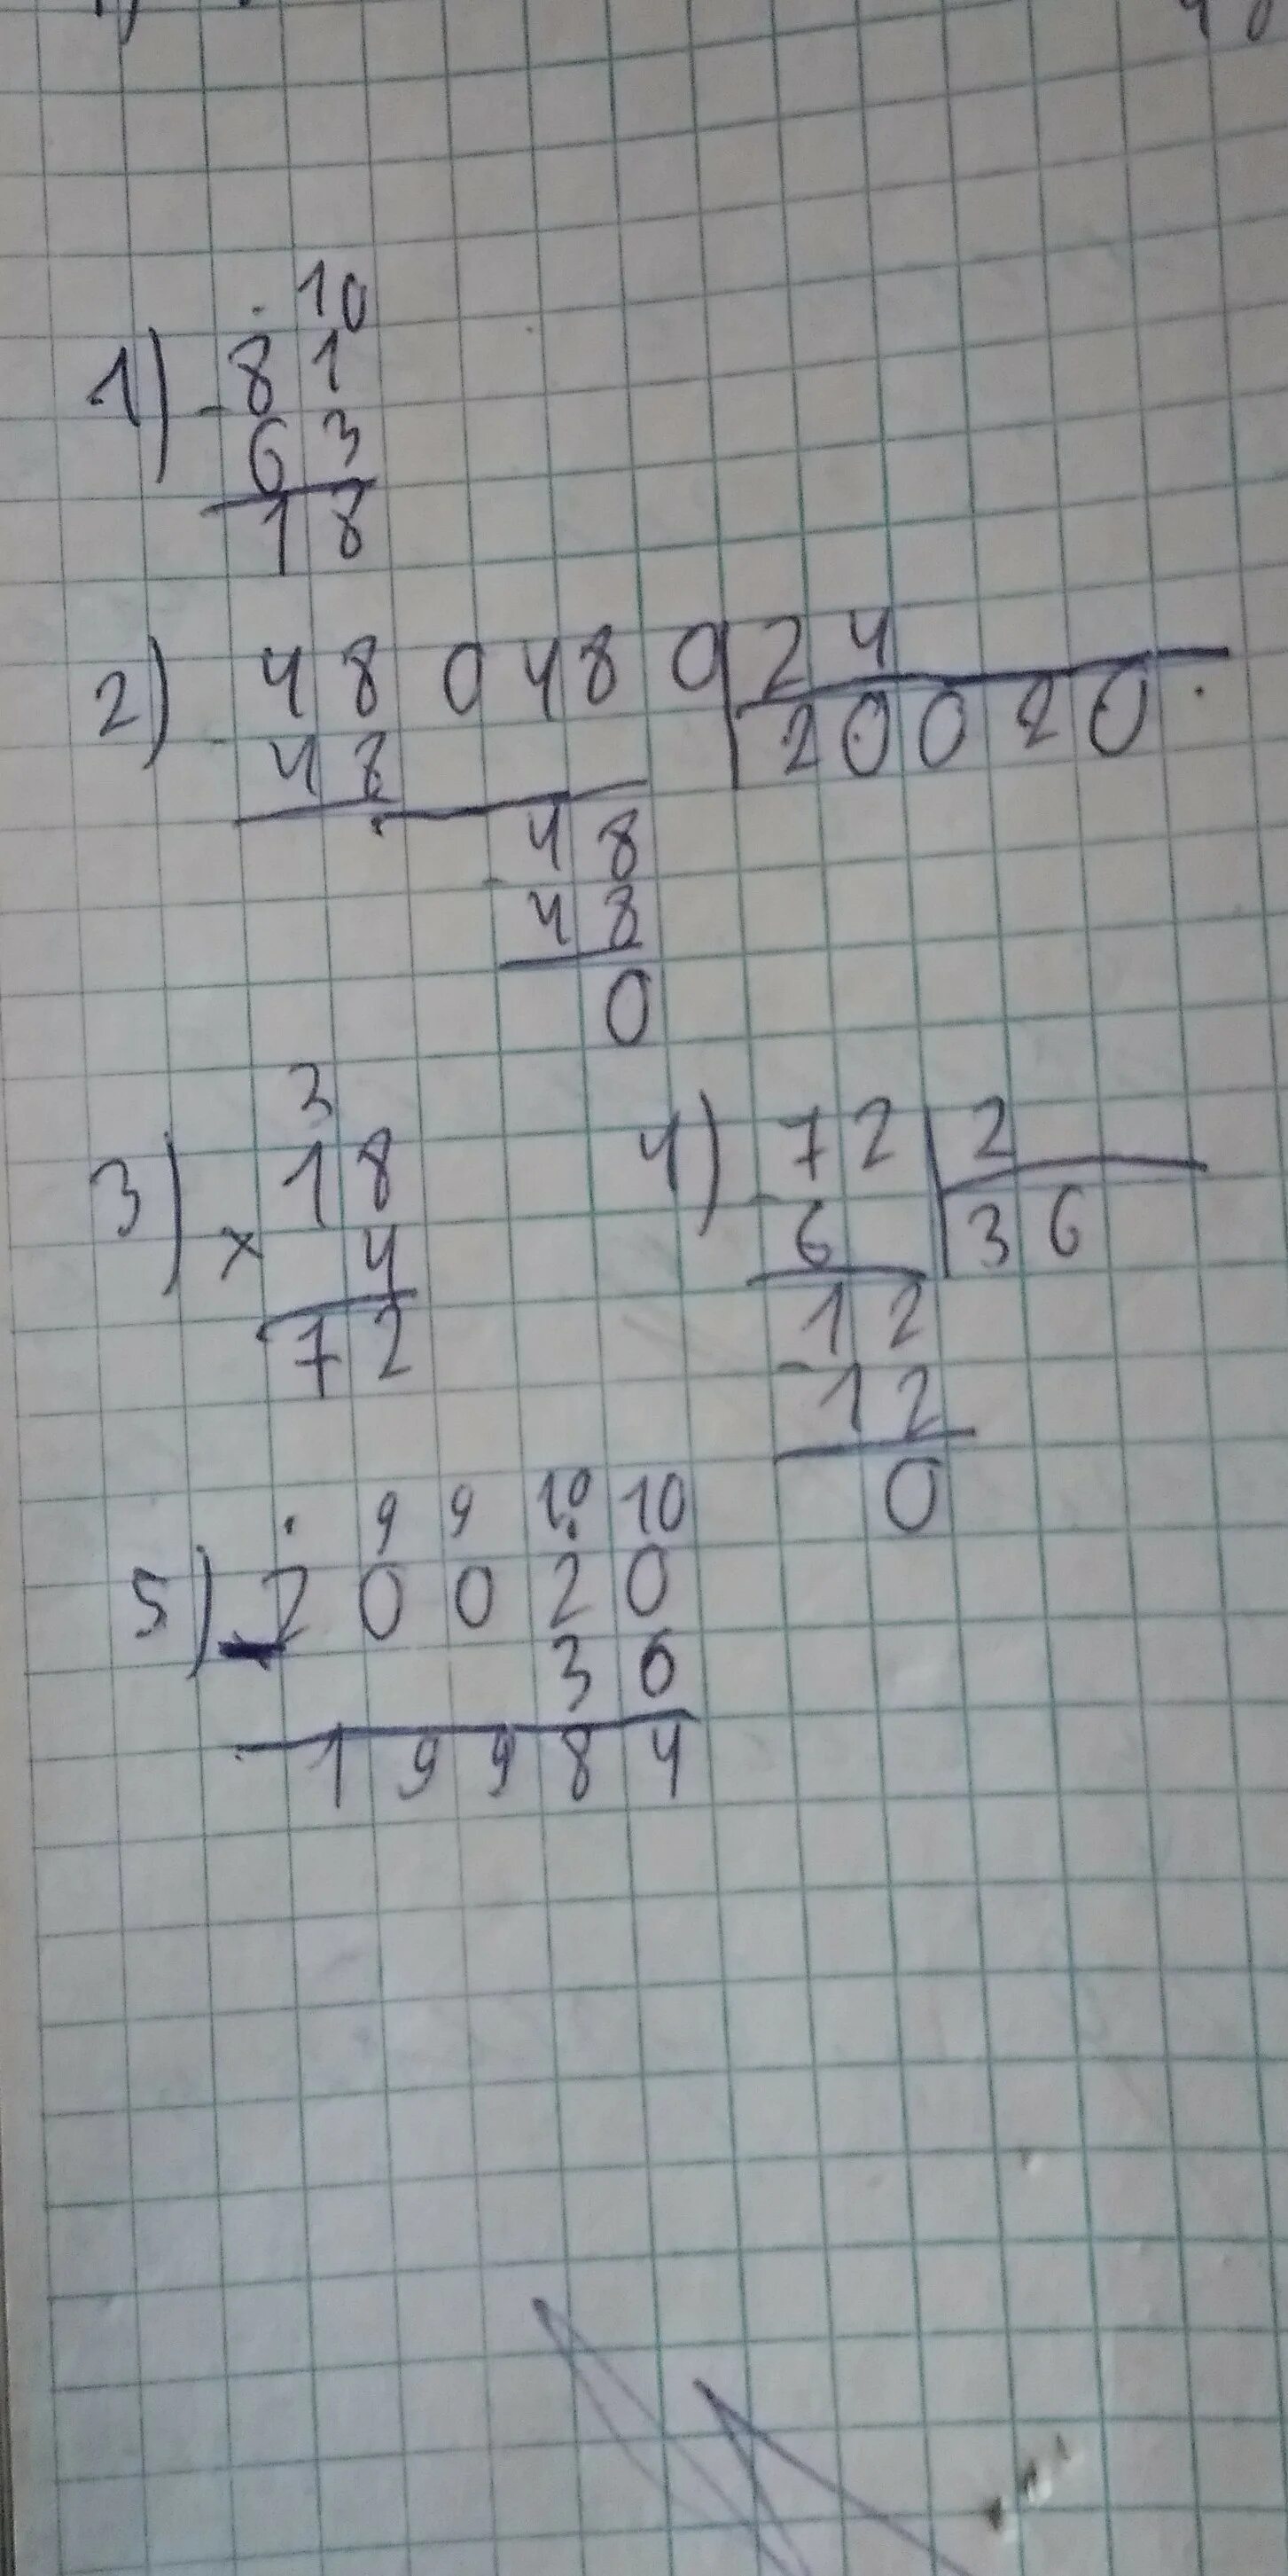 10
1) - 81
63
18
2) 480480 | 24
- 48 20020.
- 48
48
0
3
3) 18
× 4
72
4) - 72 | 2
6 36
- 12
12
0
9 9 10 10
5) - 20020
36
19984